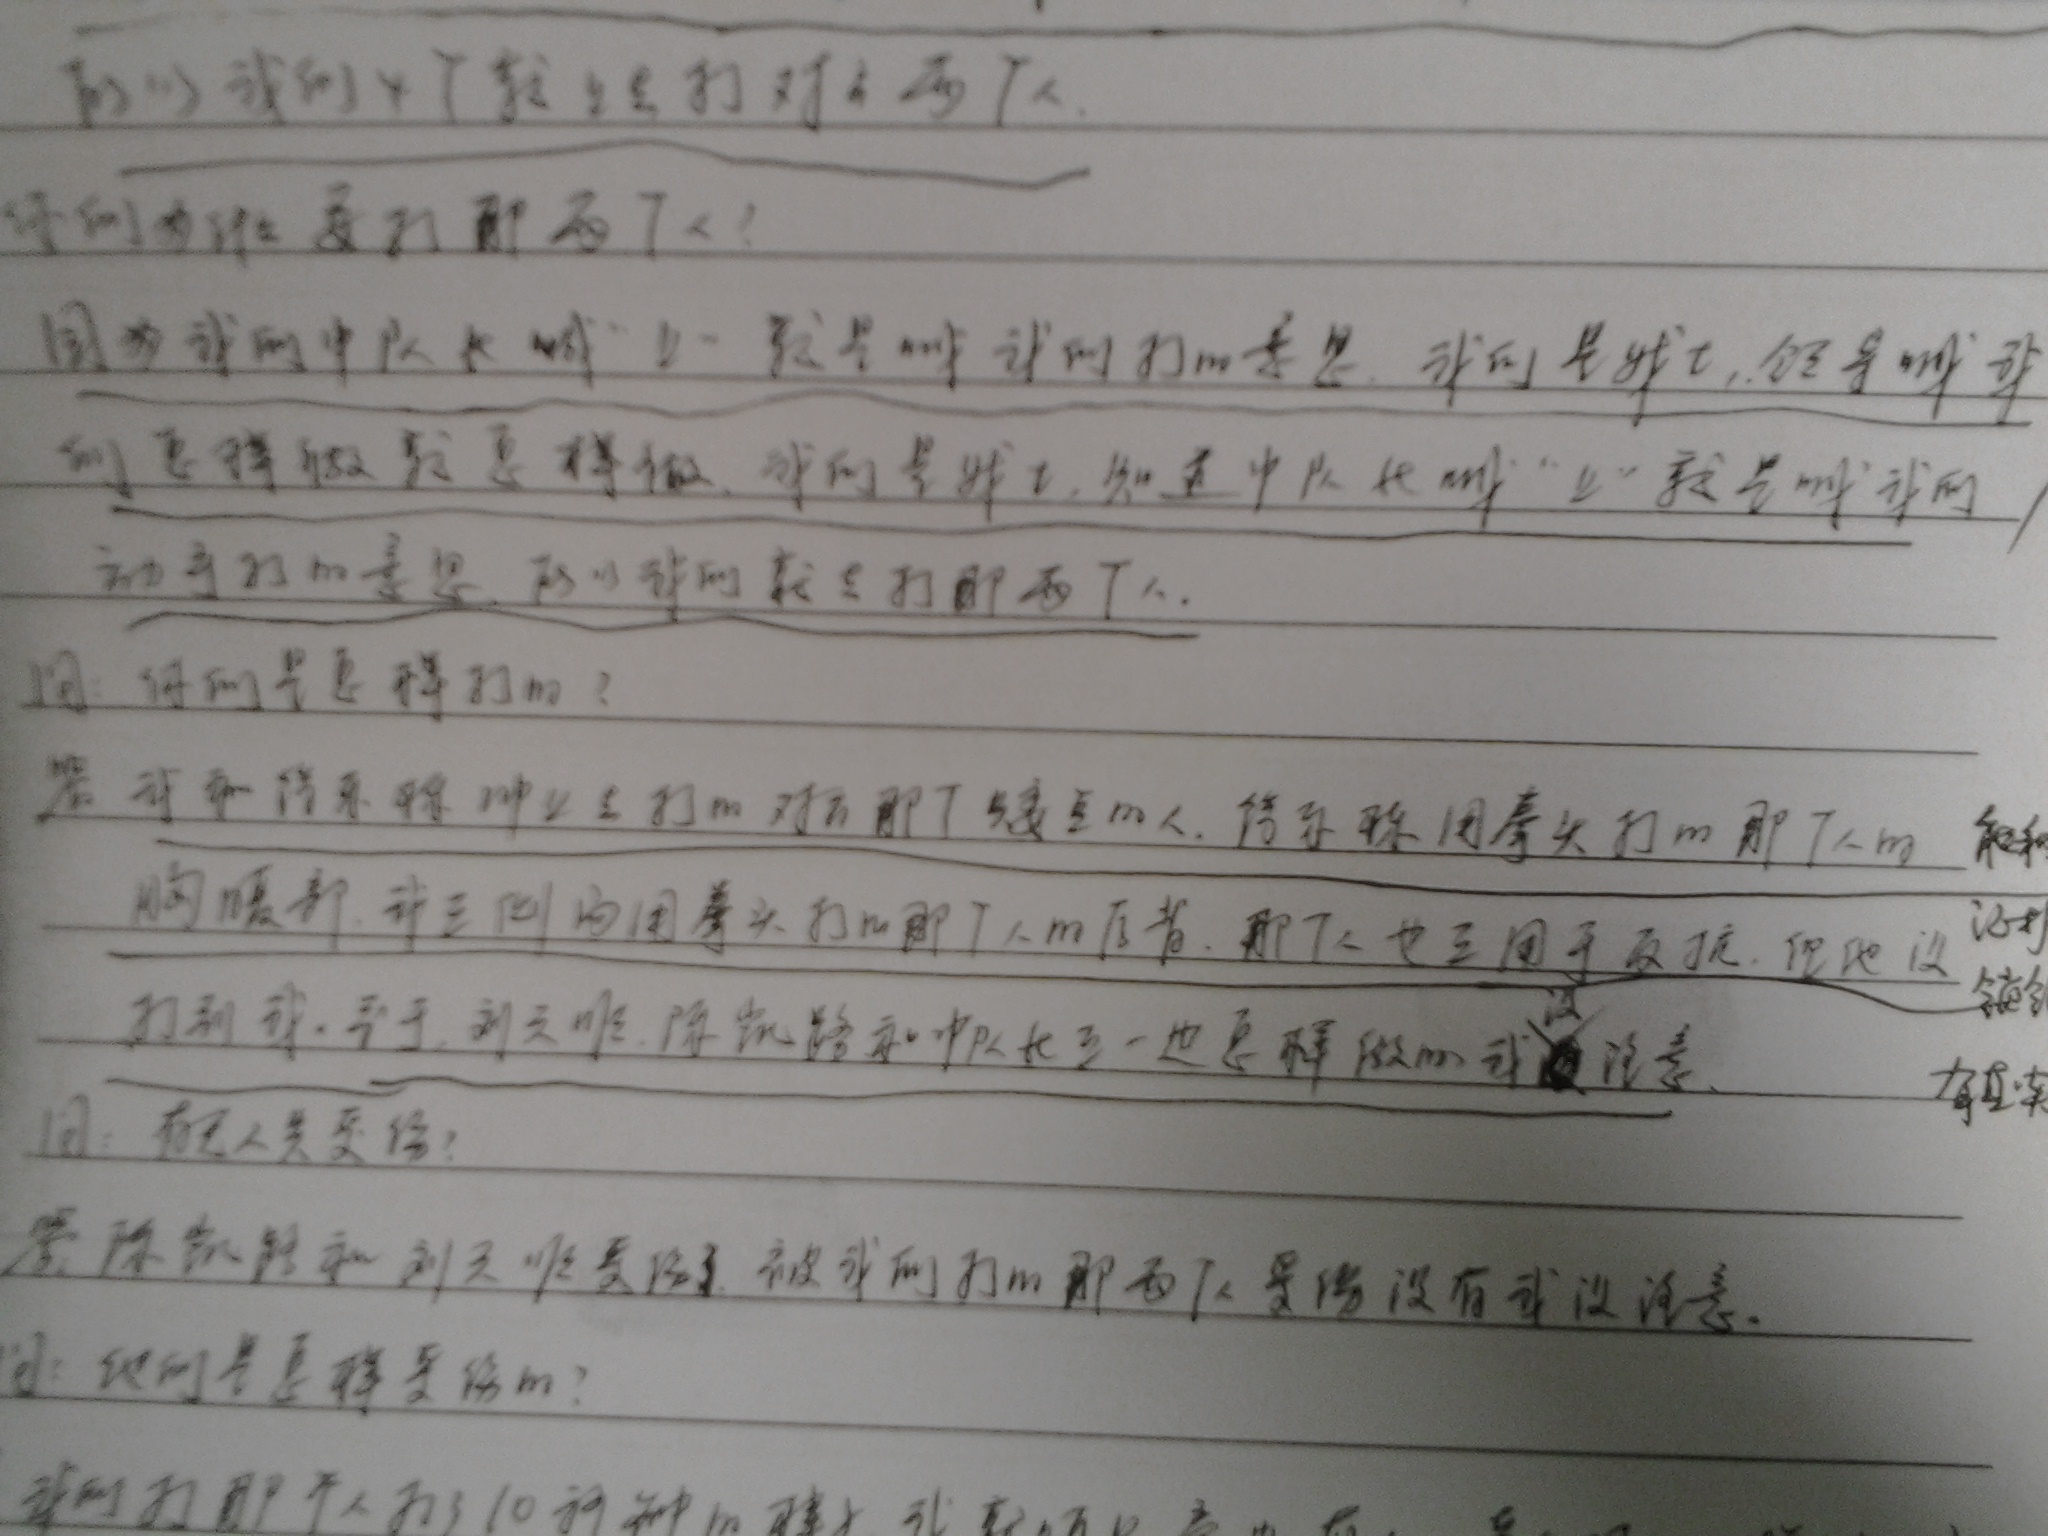 所以我们4个就上去打对方两个人.
你们为什么要打那两个人?
因为我们中队长喊“上”就是喊我们打的意思. 我们是战士, 领导喊我
们怎样做就怎样做. 我们是战士, 知道中队长喊“上”就是喊我们
动手打的意思, 所以我们就去打那两个人.
问: 你们是怎样打的?
答: 我和 冲上去打的对方那个 的人. 用拳头打的那个人的
胸腹部, 我在侧面用拳头打的那个人的后背, 那个人也在用手反抗, 但他没
打到我. 至于刘天顺、陈凯路和中队长在一边怎样做的我没注意.
问: 有无人员受伤?
答: 陈凯路和刘天顺受伤了, 被我们打的那两个人受伤没有我没注意.
问: 他们是怎样受伤的?
我们打那 人打了10